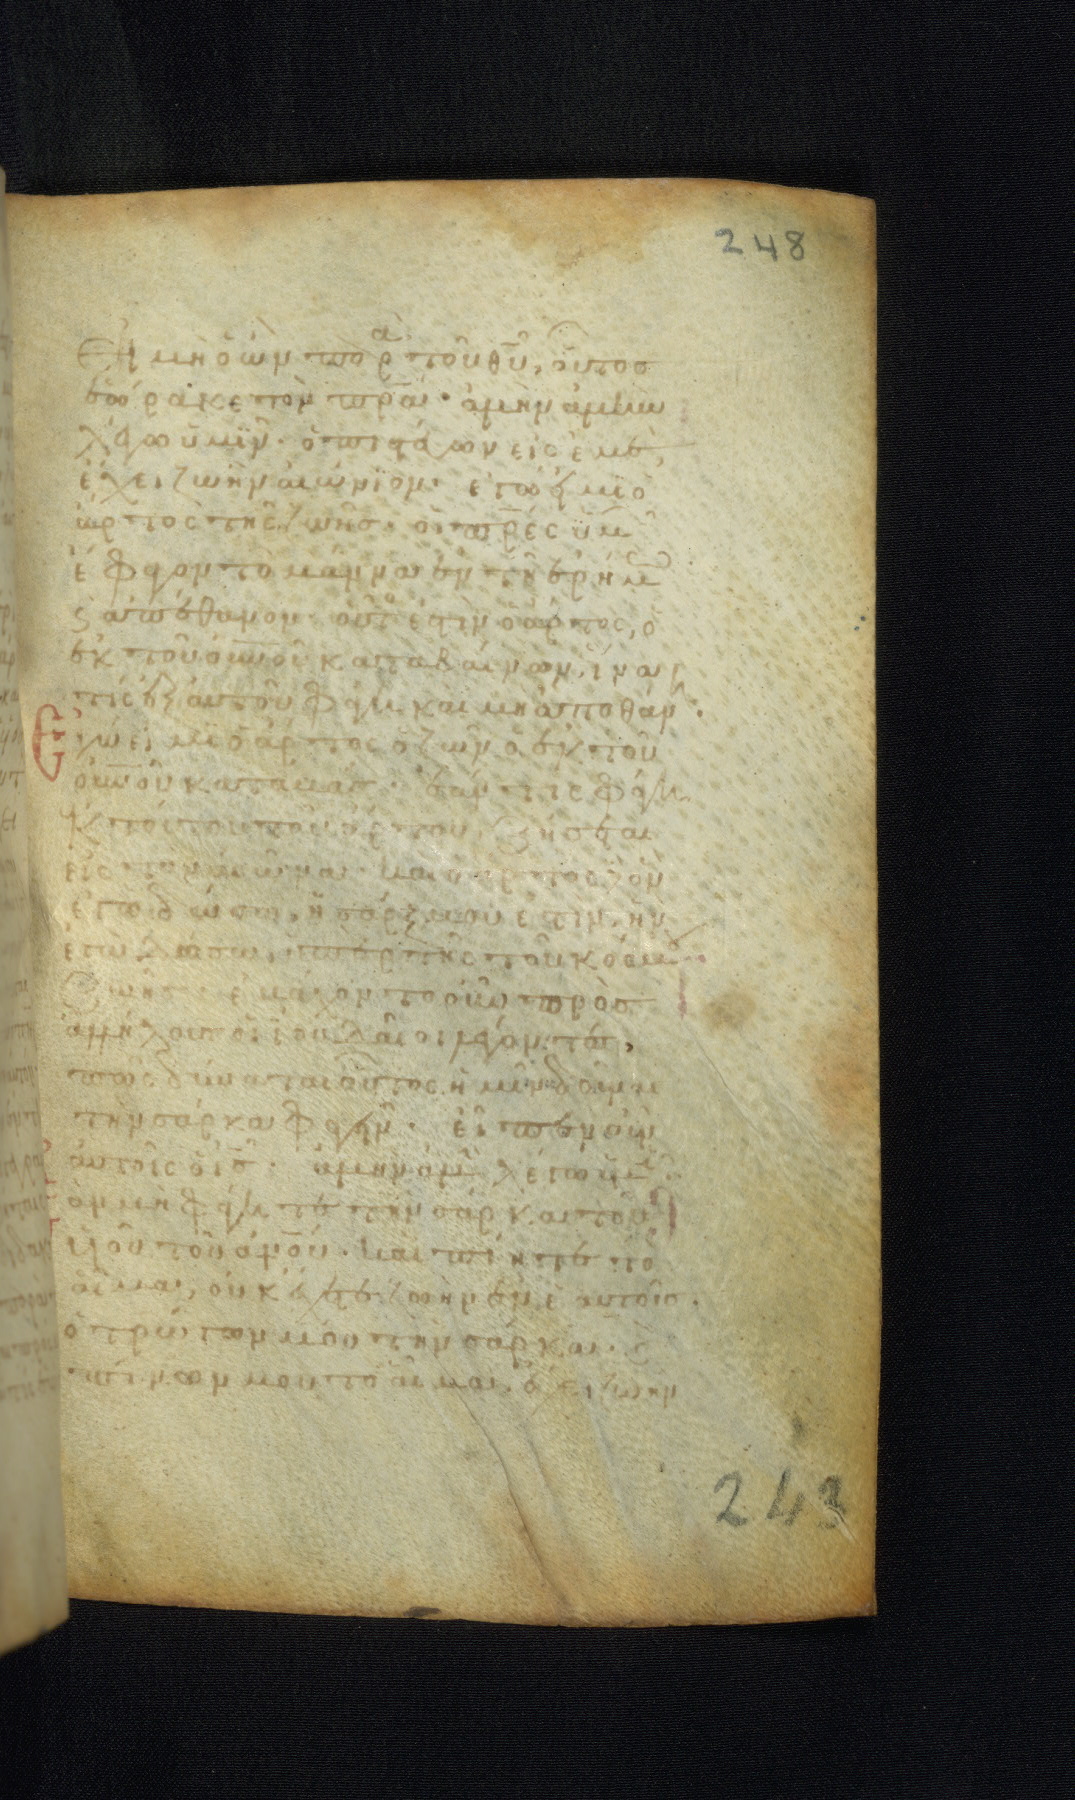 248
εἰ μὴ ὁ ὢν παρὰ τοῦ θῡ, οὗτος
ἑώρακε τὸν πρ̄α· ἀμὴν ἀμὴν
λέγω ὑμῖν· ὁ πιστεύων εἰς ἐμὲ,
ἔχει ζωὴν αἰώνιον· ἐγώ εἰμι ὁ
ἄρτος τῆς ζωῆς· οἱ πρ̄ες ὑμ
ἔφαγον το μάννα ἐν τῆ ἐρήμ
ϛ ἀπέθανον· οὗτ ἐστιν ὁ ἄρτος, ὁ
ἐκ τοῦ οὐνοῦ καταβαίνων, ἵνα
τίς ἐξ αυτοῦ φάγη και μὴ ἀποθάν·
Εγώ εἰμι ὁ ἄρτος ὁ ζῶν ὁ ἐκ τοῦ
οὐνοῦ καταβάς· ἐάν τις φάγη
ἐκ τούτου τοῦ ἄρτου, ζήσεται
εἰς τὸν αἰῶνα· και ὁ ἄρτος ὃν
ἐγὼ δώσω, ἡ σάρξ μου ἐστιν, ἣν
ἐγὼ δώσω, ὑπὲρ τῆς τοῦ κόσμ
ζωῆς· ἐμάχοντο οὖν πρὸς
ἀλλήλους οἱ ἰουδαῖοι λέγοντες,
πῶς δύναται οὗτος ἡμῖν δοῦναι
τὴν σάρκα φαγεῖν· εἶπεν οὖν
αὐτοῖς ὁ ῑς· ἀμὴν ἀμὴ λέγω ὑμ
ἐὰν μὴ φάγητε τὴν σάρκα τοῦ
ῡῡ τοῦ ἀνοῦ· και πίητε το
αἷμα, οὐκ ἔχετε ζωὴν ἐν ἑαυτοῖς·
ὁ τρώγων μου τὴν σάρκα ϛ
πίνων μου το αἷμα, ἔχει ζωὴν
243